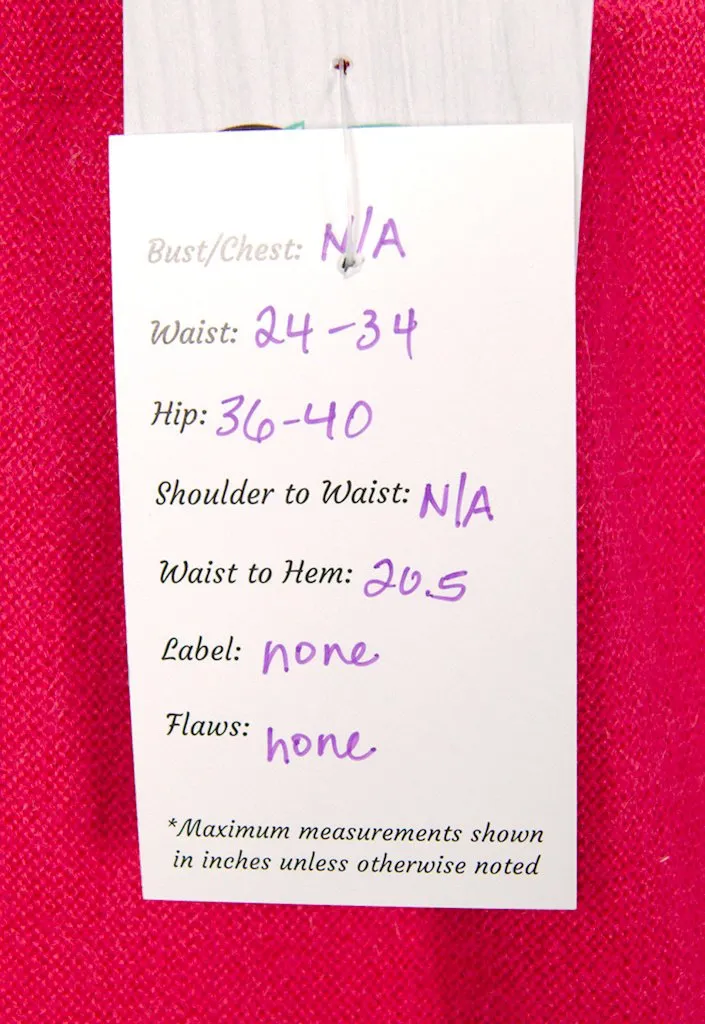 Bust/Chest: N/A
Waist: 24-34
Hip: 36-40
Shoulder to Waist: N/A
Waist to Hem: 20.5
Label: none
Flaws: none
*Maximum measurements shown
in inches unless otherwise noted